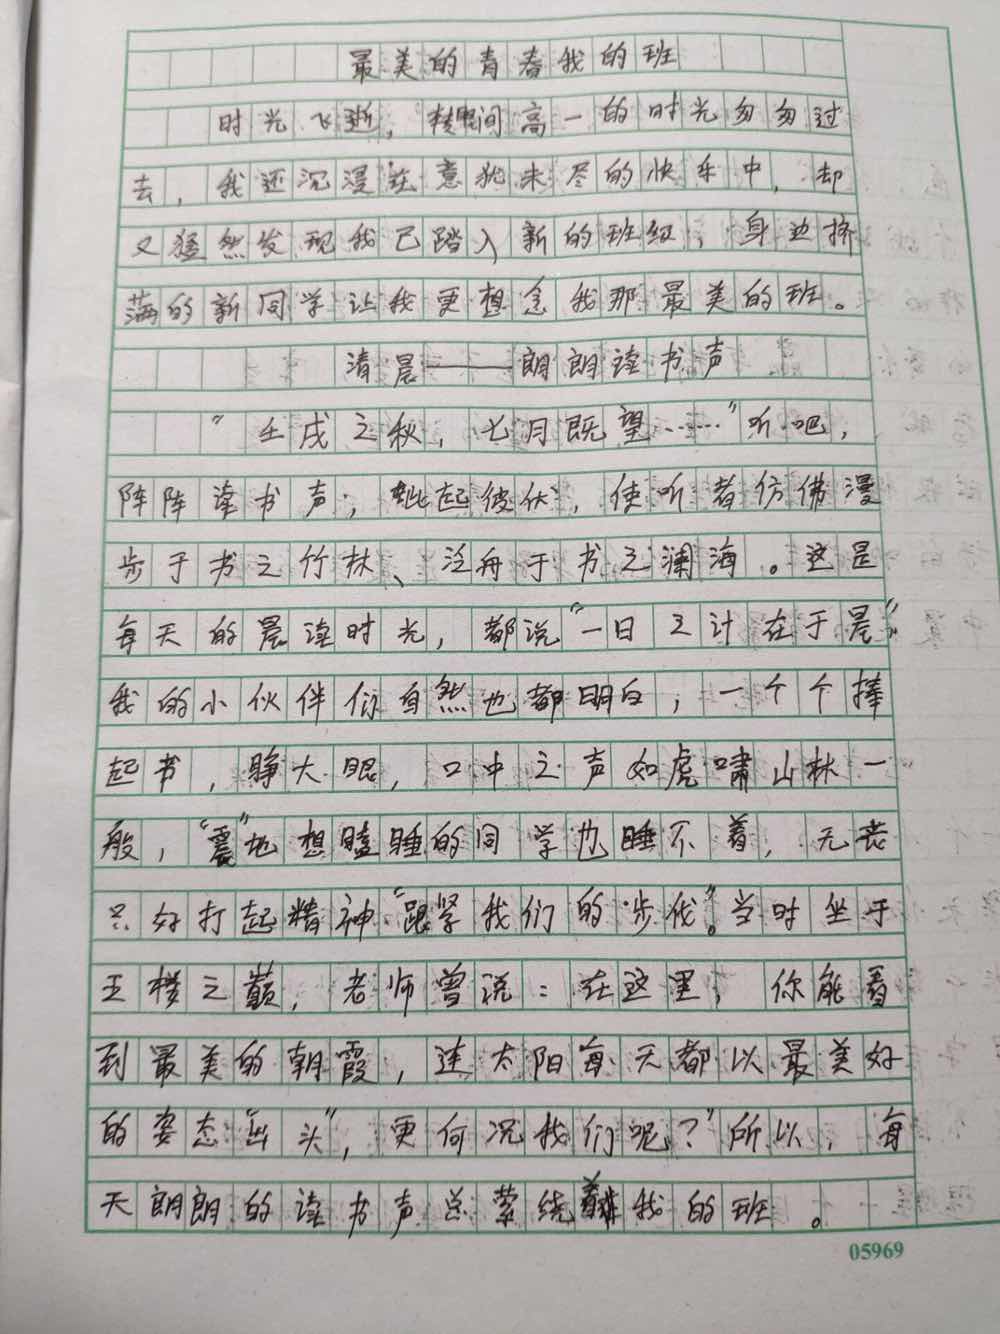 最美的青春我的班
时光飞逝，转眼间高一的时光匆匆过
去，我还沉浸在意犹未尽的快乐中，却
又猛然发现我已踏入新的班级，身边挤
满的新同学让我更想念我那最美的班。
清晨——朗朗读书声
"壬戌之秋，七月既望……"听吧，
阵阵读书声，此起彼伏，使听者仿佛漫
步于书之竹林、泛舟于书之澜海。这是
每天的晨读时光，都说"一日之计在于晨"
我的小伙伴们自然也都明白，一个个捧
起书，睁大眼，口中之声如虎啸山林一
般，"震"地想瞌睡的同学也睡不着，无丧
只好打起精神"跟紧我们的步伐"。当时坐于
五楼之巅，老师曾说：在这里，你能看
到最美的朝霞，连太阳每天都以最美好
的姿态"出头"，更何况我们呢？"所以，每
天朗朗的读书声总萦绕着我的班。
05969